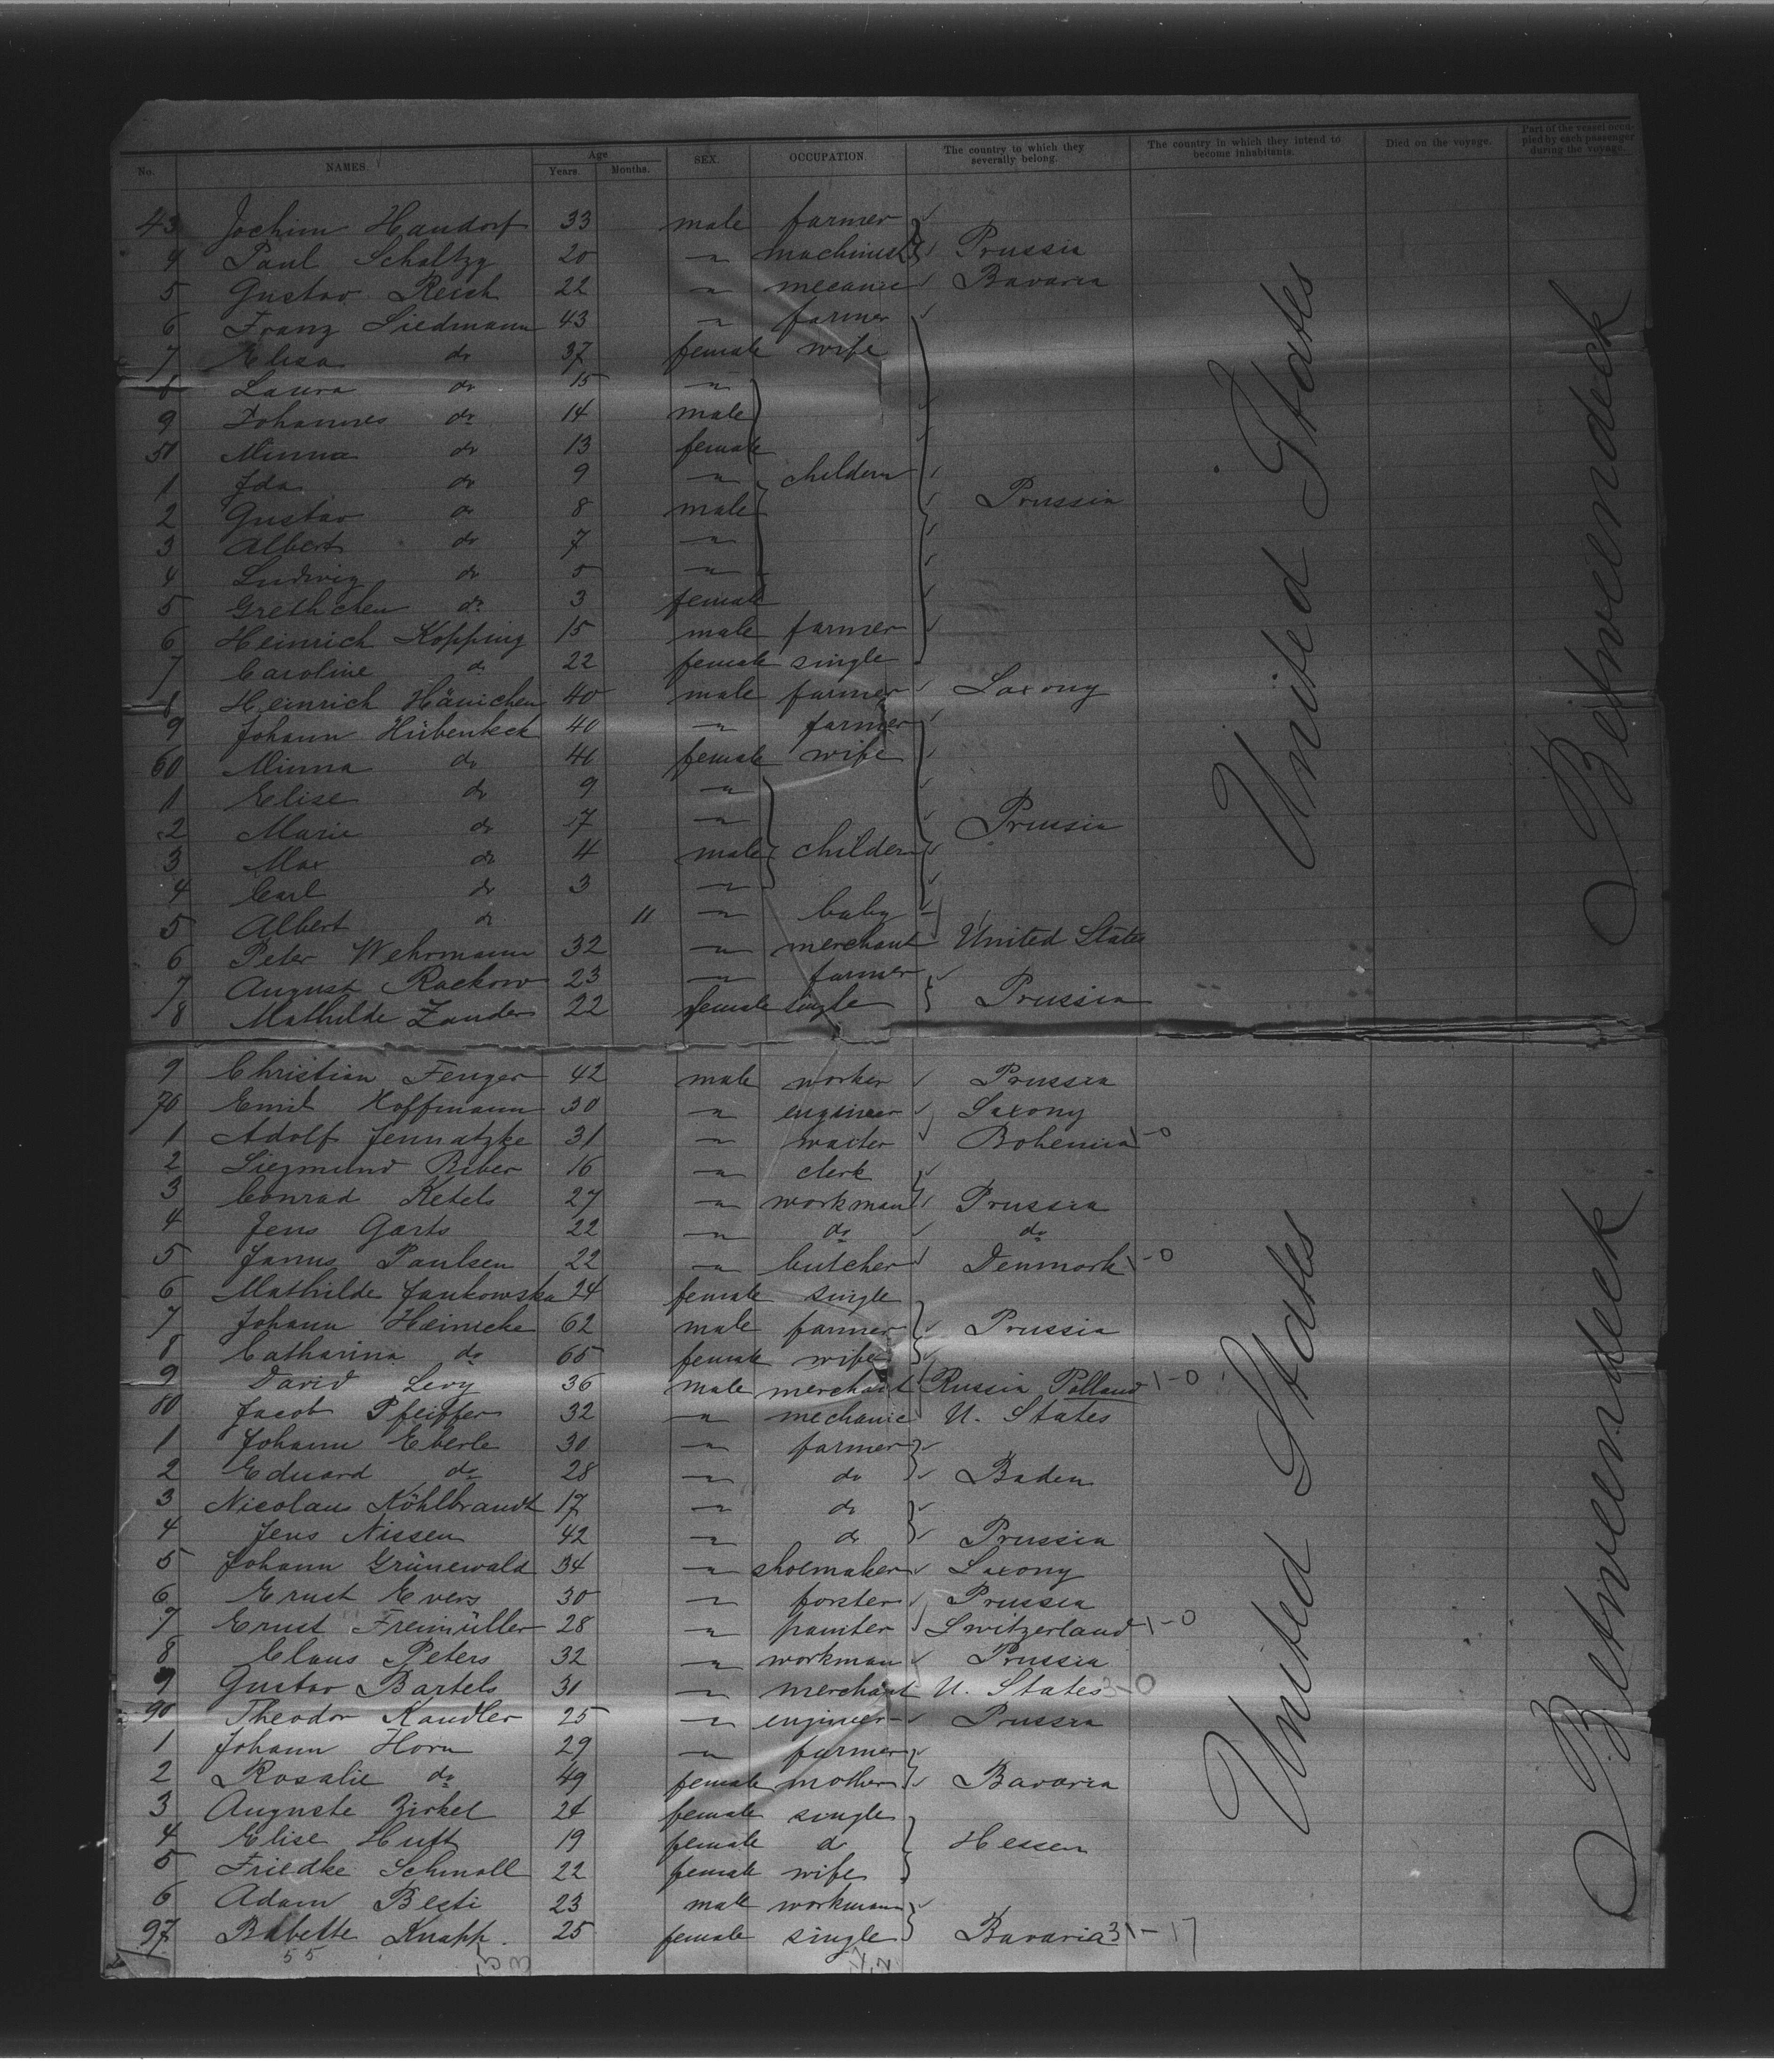 No. NAMES. Age Years. Months. SEX. OCCUPATION. The country to which they severally belong. The country in which they intend to become inhabitants. Died on the voyage. Part of the vessel occupied by each passenger during the voyage.
43 Jochim Handorf 33 male farmer
4 Paul Scholtzy 20 " machinist Prussia
5 Gustav Reich 22 " mecanic Bavaria
6 Franz Siedmann 43 " farmer
7 Elisa do 37 female wife
8 Laura do 15 "
9 Johannes do 14 male
50 Minna do 13 female
1 Ida do 9 " childern
2 Gustav do 8 male Prussia
3 Albert do 7 "
4 Ludwig do 5 "
5 Grethchen do 3 female
6 Heinrich Kopping 15 male farmer
7 Caroline do 22 female single
8 Heinrich Hänichen 40 male farmer Saxony
9 Johann Hübenbeck 40 " farmer
60 Minna do 41 female wife
1 Elise do 9 "
2 Marie do 7 " Prussia
3 Max do 4 male childern
4 Carl do 3 "
5 Albert do 11 " baby
6 Peter Wehrmann 32 " merchant United States
7 August Rackow 23 " farmer
8 Mathilde Zander 22 female single Prussia
United States
Betweendeck
9 Christian Fenger 42 male worker Prussia
70 Emil Hoffmann 30 " engineer Saxony
1 Adolf Jennatzke 31 " waiter Bohemia 1-0
2 Siegmund Biber 16 " clerk
3 Conrad Ketels 27 " workman Prussia
4 Jens Garts 22 " do do
5 Janus Paulsen 22 " butcher Denmark 1-0
6 Mathilde Jankowska 24 female single
7 Johann Heinicke 62 male farmer Prussia
8 Catharina do 65 female wife
9 David Levy 36 male merchant Russia Polland 1-0
80 Jacob Pfeiffer 32 " mechanic U. States
1 Johann Eberle 30 " farmer
2 Eduard do 28 " do Baden
3 Nicolaus Köhlbrandt 17 " do
4 Jens Nissen 42 " do Prussia
5 Johann Grünewald 34 " shoemaker Saxony
6 Ernst Evers 30 " forster Prussia
7 Ernst Freimüller 28 " painter Switzerland 1-0
8 Claus Peters 32 " workman Prussia
9 Gustav Bartels 31 " merchant U. States 3-0
90 Theodor Kandler 25 " engineer Prussia
1 Johann Horn 29 " farmer
2 Rosalie do 49 female mother Bavaria
3 Auguste Zirkel 24 female single
4 Elise Huft 19 female do Hessen
5 Friedke Schmoll 22 female wife
6 Adam Besti 23 male workman
97 Babette Knapp. 25 female single Bavaria 31-17
United States
Betweendeck
55